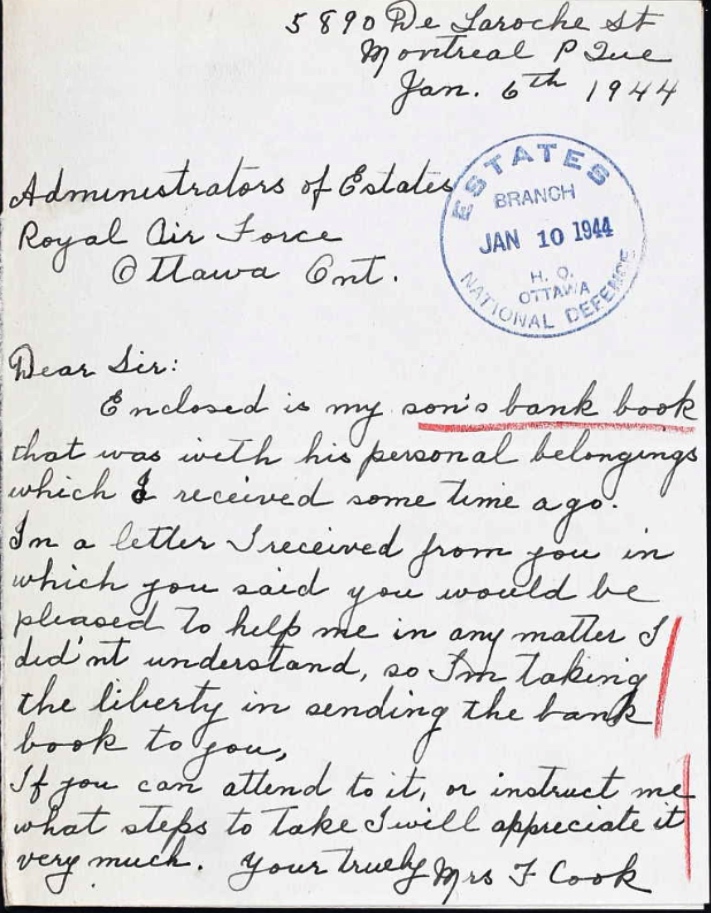 5890 De Laroche St
Montreal P Que
Jan. 6th 1944
Administrators of Estates
Royal Air Force
Ottawa Ont.
ESTATES
BRANCH
JAN 10 1944
H. Q.
OTTAWA
NATIONAL DEFENCE
Dear Sir:
Enclosed is my son's bank book
that was with his personal belongings
which I received some time ago.
In a letter I received from you in
which you said you would be
pleased to help me in any matter I
did'nt understand, so I'm taking
the liberty in sending the bank
book to you,
If you can attend to it, or instruct me
what steps to take I will appreciate it
very much. Your truely Mrs F Cook